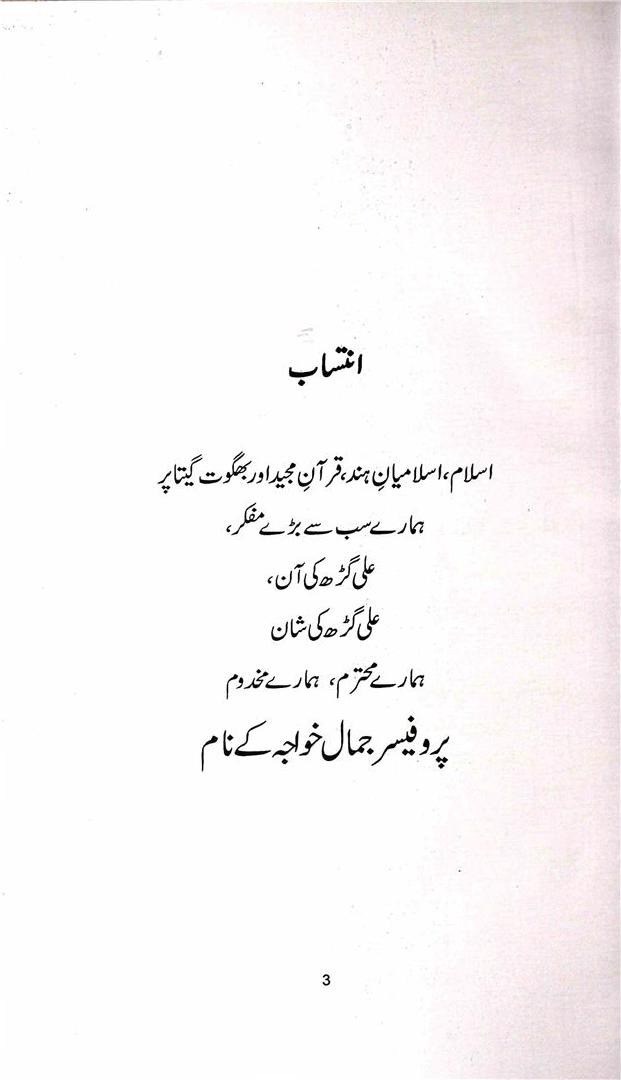 انتساب
اسلام، اسلامیانِ ہند، قرآنِ مجید اور بھگوت گیتا پر
ہمارے سب سے بڑے مفکر،
علی گڑھ کی آن،
علی گڑھ کی شان
ہمارے محترم، ہمارے مخدوم
پروفیسر جمال خواجہ کے نام
3